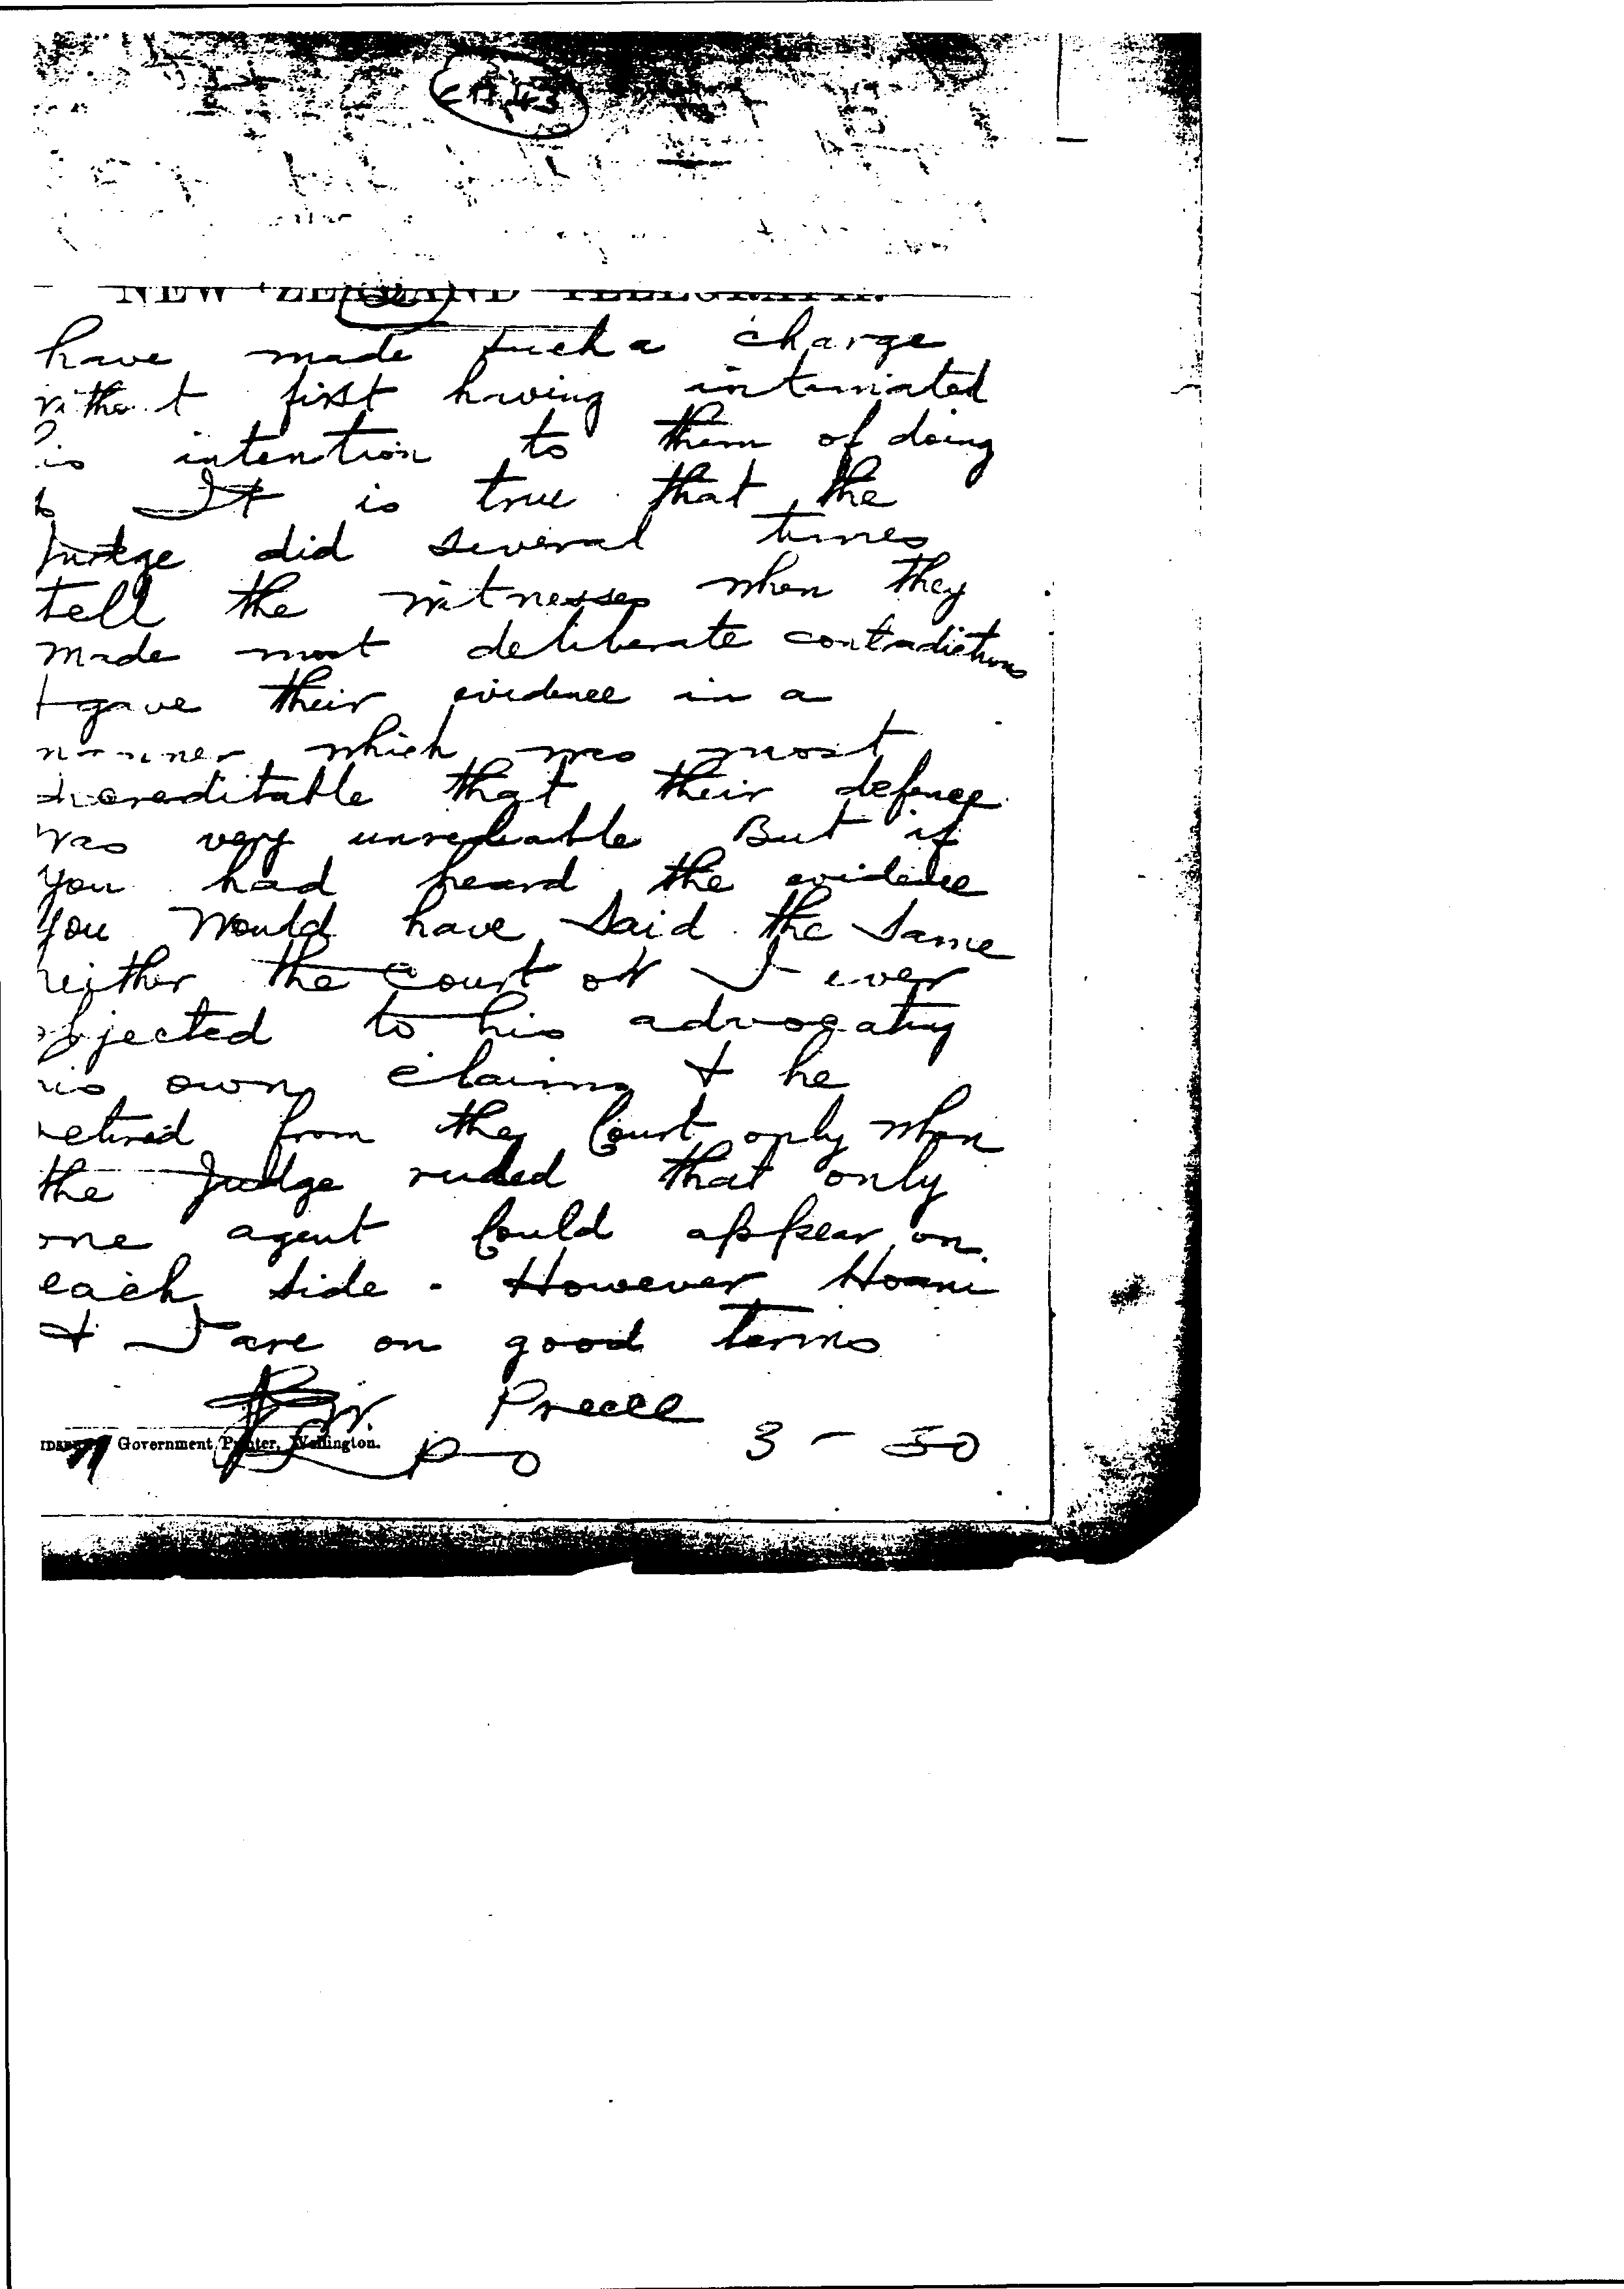 NEW ZEALAND TELEGRAPH.
have made such a charge
without first having intimated
his intention to them of doing
so It is true that the
Judge did several times
tell the witnesses when they
made most deliberate contradictions
& gave their evidence in a
manner which was most
discreditable that their defence
was very unreliable But if
you had heard the evidence
you would have said the same
neither the court or I ever
objected to his advocating
his own claims & he
retired from the Court only when
the Judge ruled that only
one agent could appear on
each side. However Hoani
& I are on good terms
Preece
Government Printer, Wellington.
3 - 50